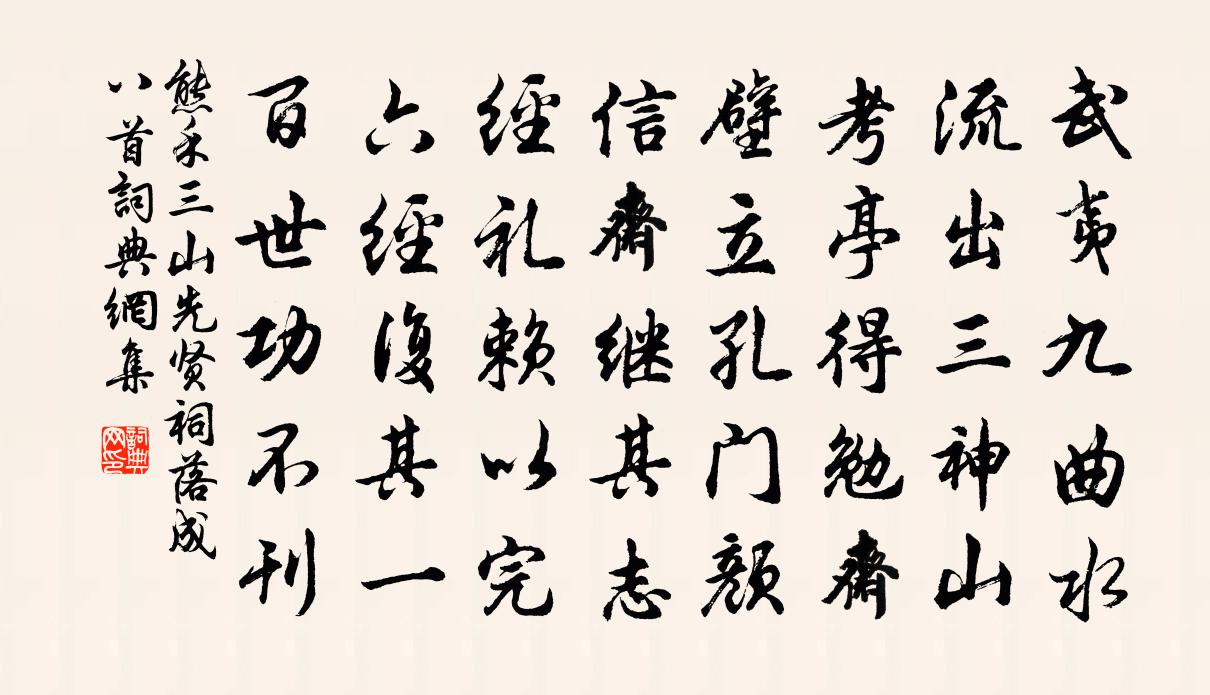 武夷九曲水
流出三神山
考亭得勉齋
壁立孔门顔
信齋继其志
經礼赖以完
六經復其一
百世功不刊
熊禾三山先贤祠落成
八首詞典網集
詞典
网印